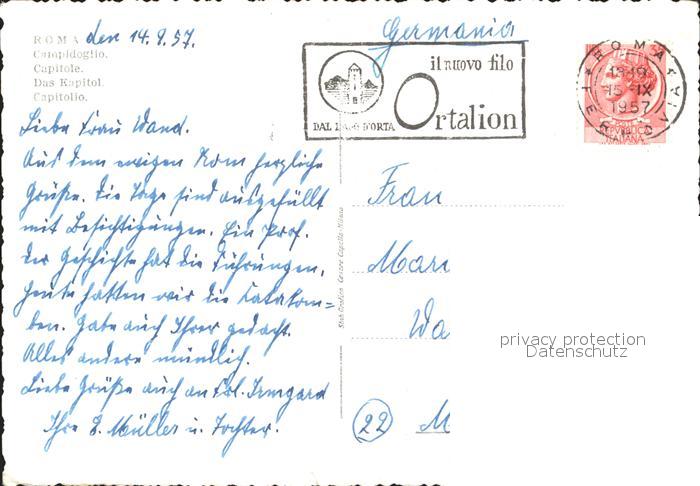 ROMA den 14.9.57.
Campidoglio.
Capitole.
Das Kapitol.
Capitolio.
Germania
il nuovo filo
Ortalion
DAL LAGO D'ORTA
ROMA FERROVIA
18-19
15-IX
1957
Liebe Frau Wand.
Aus dem ewigen Rom herzliche
Grüße. Die Tage sind ausgefüllt
mit Besichtigungen. Ein Prof.
der Geschichte hat die Führungen,
heute hatten wir die Katakom=
ben. Habe auch Ihrer gedacht.
Alles andere mündlich.
Liebe Grüße auch an Frl. Irmgard
Ihre E. Müller u. Tochter.
Frau
Mari
Wa
22 M
privacy protection
Datenschutz